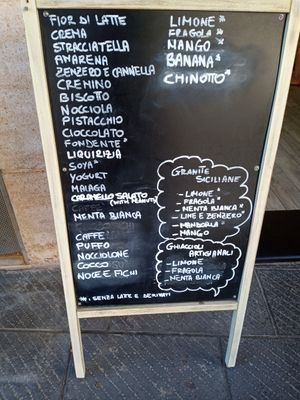 FIOR DI LATTE
CREMA
STRACCIATELLA
AMARENA
ZENZERO E CANNELLA
CREMINO
BISCOTTO
NOCCIOLA
PISTACCHIO
CIOCCOLATO
FONDENTE *
LIQUIRIZIA
SOYA *
YOGURT
MALAGA
CARAMELLO SALATO
(WITH PEANUTS)
MENTA BIANCA
CAFFÈ
PUFFO
NOCCIOLONE
COCCO
NOCE E FICHI
LIMONE *
FRAGOLA *
MANGO *
BANANA *
CHINOTTO *
GRANITE
SICILIANE
- LIMONE *
- FRAGOLA *
- MENTA BIANCA *
- LIME E ZENZERO *
- MANDORLA *
- MANGO
GHIACCIOLI
ARTIGIANALI
- LIMONE
- FRAGOLA
- MENTA BIANCA *
* = SENZA LATTE E DERIVATI